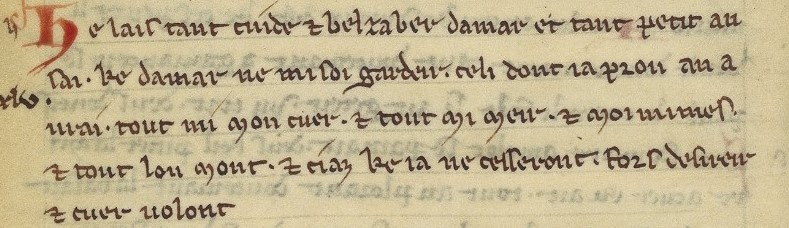 He lais tant cuide ⁊ bel xaber damar et tant petit an
sai · ke damar ne mi soi gardeir · celi dont ia prou an a
urai · tout mi mon cuer · ⁊ tout mi meir · ⁊ moi mimes ·
⁊ tout lou mont · ⁊ ciaz ke ia ne cesseront · fors desireir
⁊ cuer uolont